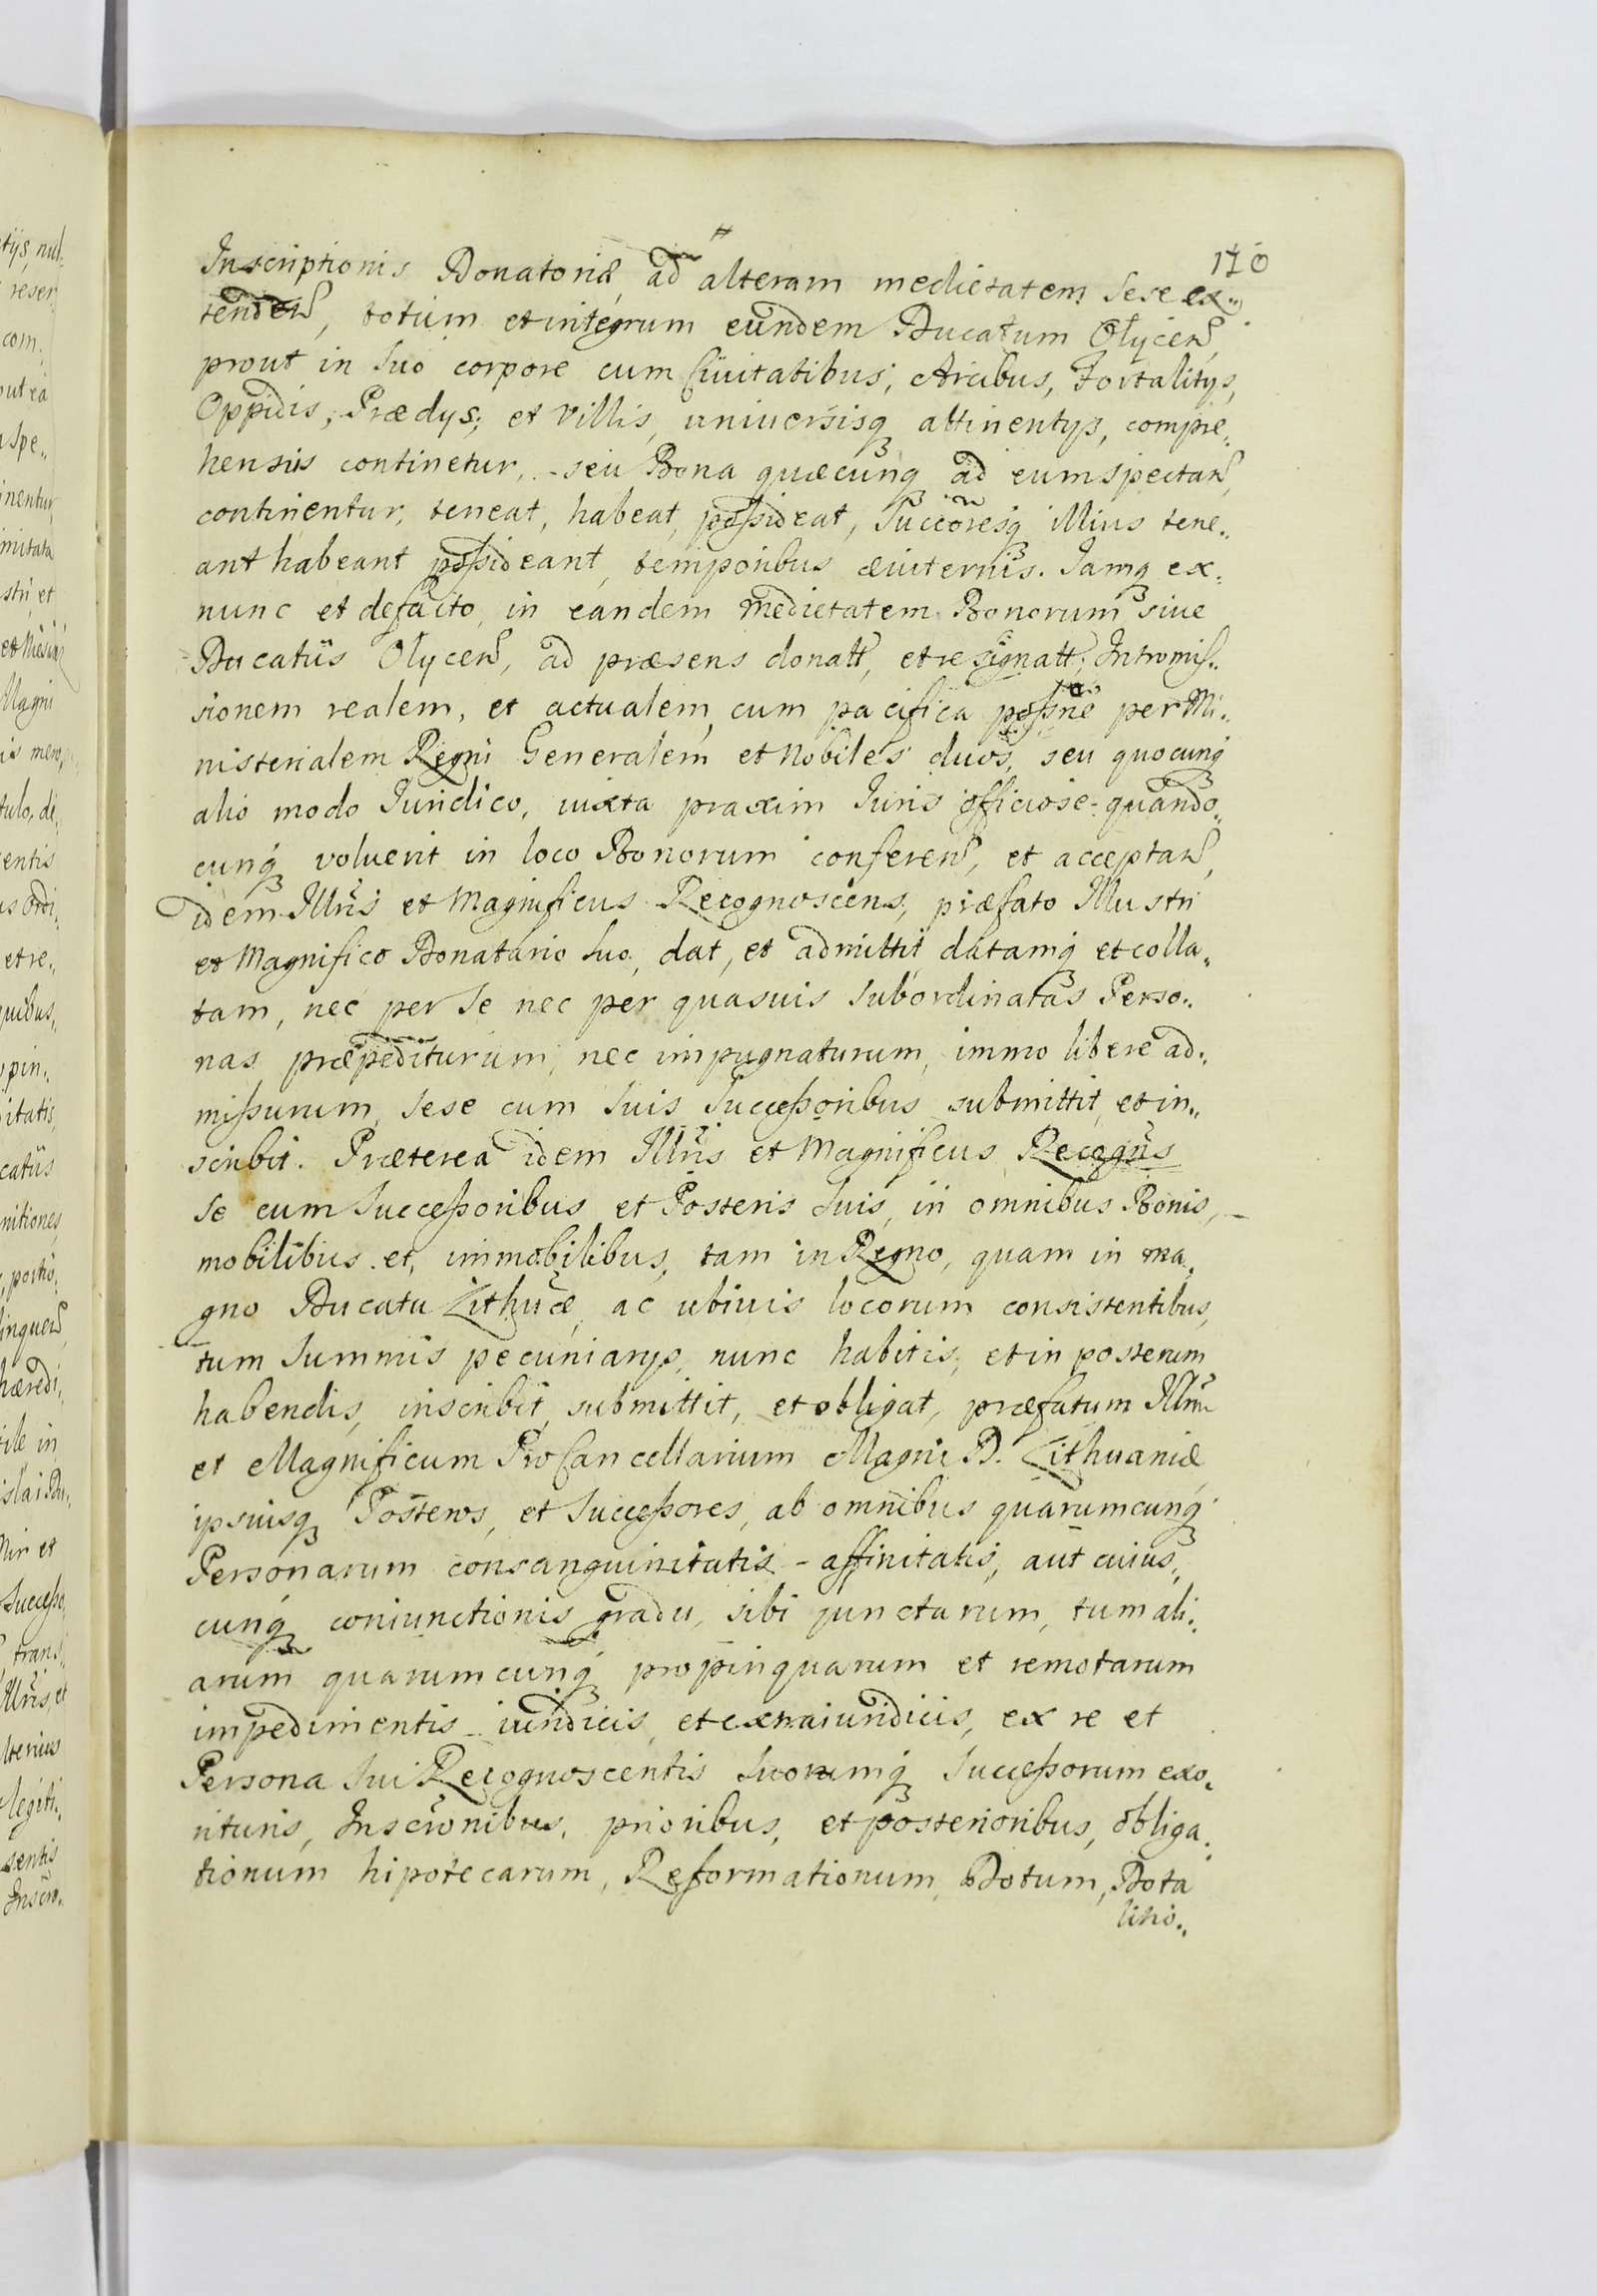 170
Inscriptionis Donatoriæ, ad alteram medietatem sese ex„
tenden, totum et integrum eundem Ducatum Olycen,
prout in suo corpore cum Civitatibus, Arcibus, Fortalitys,
Oppidis, Prædys, et villis, universisq attinentys, compre„
hensus continetur, seu Bona quæcunq ad eum spectan,
continentur, teneat, habeat, possideat, Succoresq illius tene„
ant habeant possideant, temporibus æviternis. Iamq ex„
nunc et defacto, in eandem medietatem Bonorum sive
Ducatus Olycen, ad præsens donatt, et resignatt, Intromis„
sionem realem, et actualem, cum pacifica possne per Mi„
nisterialem Regni Generalem et Nobiles duos, seu quocunq
alio modo Iuridico, iuxta praxim Iuris officiose quando„
cunq voluerit in loco Bonorum conferen, et acceptan,
idem Illris et Magnificus Recognoscens, præfato Illustri
et Magnifico Donatario suo, dat, et admittit datamq et colla„
tam, nec per se nec per quasuis subordinatas Perso„
nas præpediturum, nec impugnaturum, immo libere ad„
missurum, sese cum suis successoribus submittit, et in„
scribit. Præterea idem Illris et Magnificus Recogns
se cum successoribus et Posteris suis, in omnibus Bonis,
mobilibus et, immobilibus, tam in Regno, quam in ma„
gno Ducatu Lithuæ, ac ubiuis locorum consistentibus,
tum summis pecuniarys, nunc habitis, et in posterum
habendis, inscribit, submittit, et obligat, præfatum Illrm
et Magnificum ProCancellarium Magni D. Lithuaniæ
ipsiusq Posteros, et Successores, ab omnibus quarumcunq
Personarum consanguinitatis - affinitatis, aut cuius„
cunq coniunctionis gradu, sibi junctarum, tum ali„
arum quarumcunq propinquarum et remotarum
impedimentis iuridicis, et extraiuridicis, ex re et
Persona sui Recognoscentis suorumq successorum exo„
rituris, Inscronibus, prioribus, et posterioribus, obliga„
tionum hipotecarum, Reformationum, Dotum, Dota
litio„